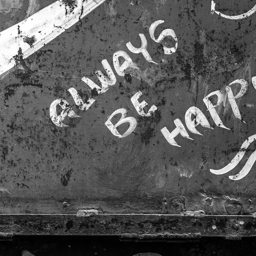 ALWAYS
BE HAPPY